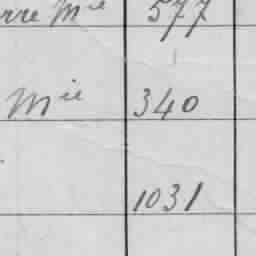 rre Mie 577
Mie 340
1031